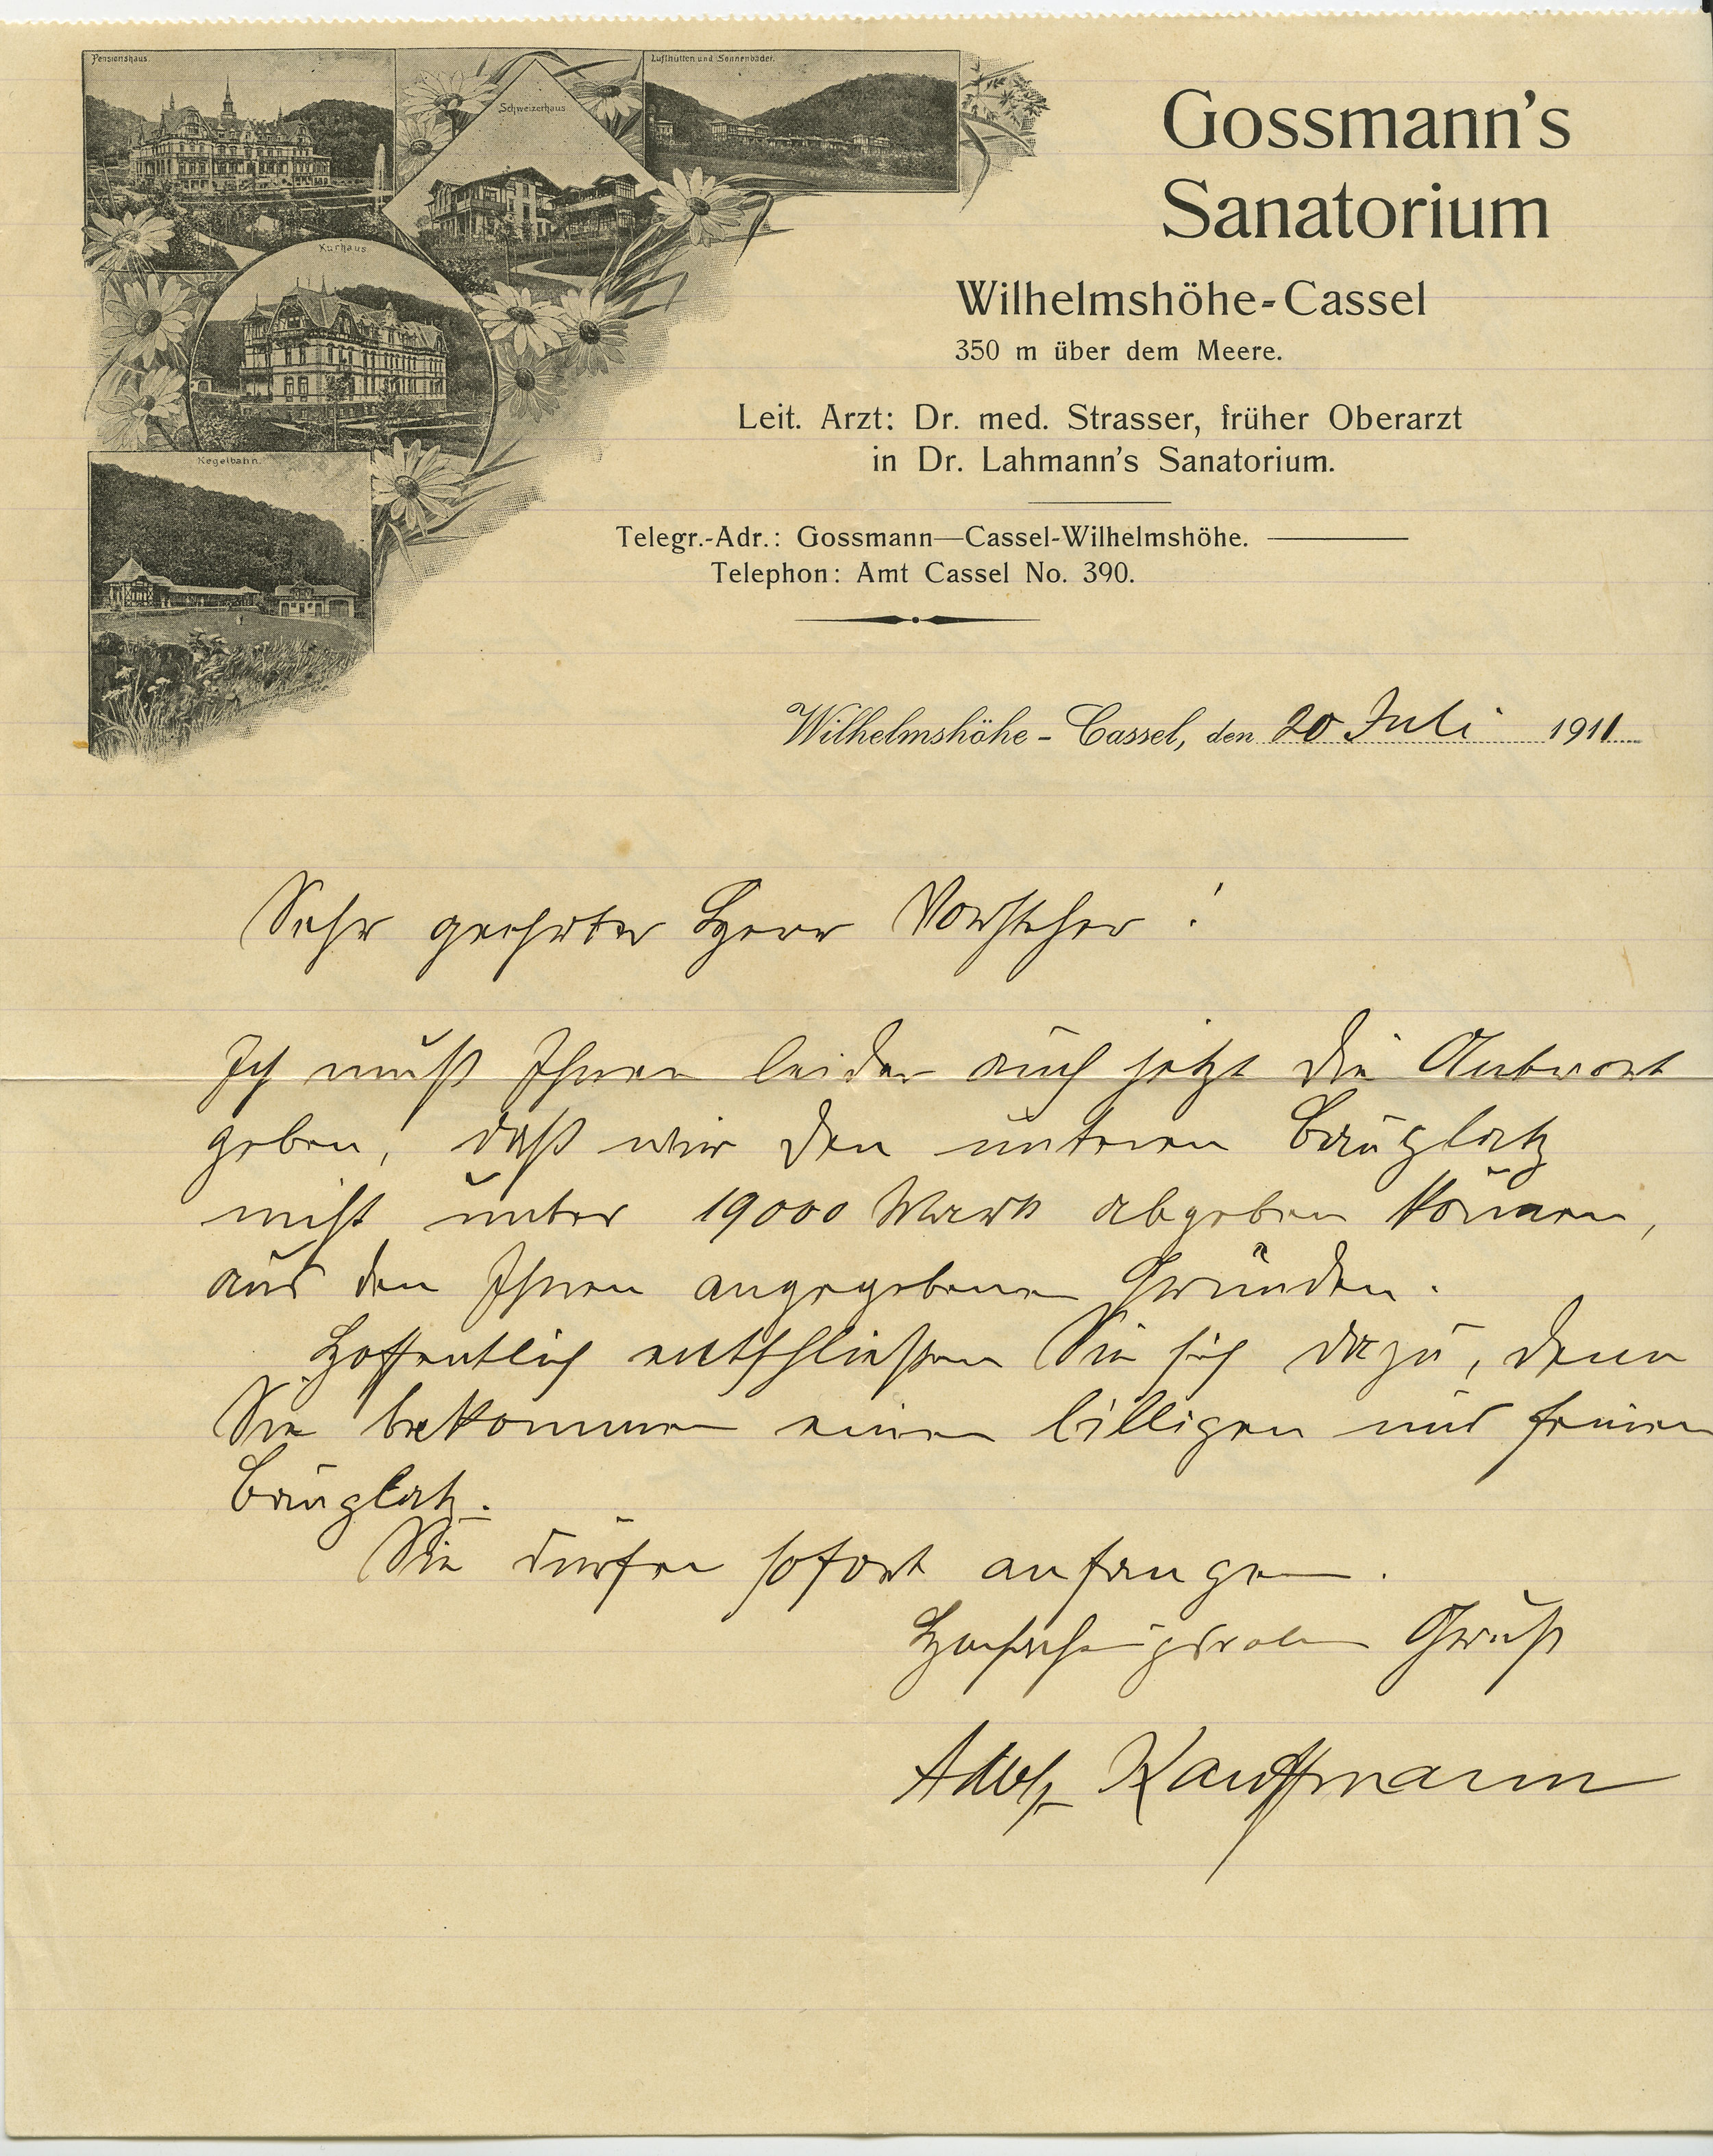 Pensionshaus.
Schweizerhaus
Lufthütten und Sonnenbäder.
Kurhaus
Kegelbahn.
Gossmann's
Sanatorium
Wilhelmshöhe-Cassel
350 m über dem Meere.
Leit. Arzt: Dr. med. Strasser, früher Oberarzt
in Dr. Lahmann's Sanatorium.
Telegr.-Adr.: Gossmann—Cassel-Wilhelmshöhe.
Telephon: Amt Cassel No. 390.
Wilhelmshöhe-Cassel, den 20 Juli 1911
Sehr geehrter Herr Vorsteher!
Ich muß Ihnen leider auch jetzt die Antwort
geben, daß wir den unteren Bauplatz
nicht unter 19000 Mark abgeben können,
aus den Ihnen angegebenen Gründen.
Hoffentlich entschließen Sie sich dazu, denn
Sie bekommen einen billigen und feinen
Bauplatz.
Sie dürfen sofort anfangen.
Hochachtungsvollen Gruß
Adolf Kauffmann